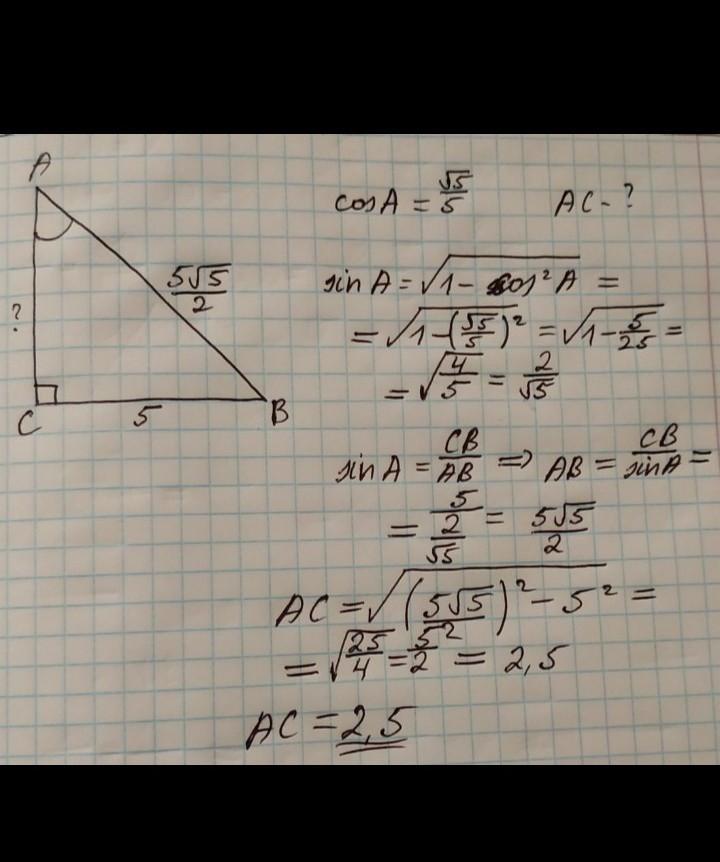 A
cosA = √5/5 AC - ?
5√5/2
sinA = √(1 - cos²A) =
= √(1 - (√5/5)²) = √(1 - 5/25) =
?
= √(4/5) = 2/√5
C 5 B
sinA = CB/AB ⇒ AB = CB/sinA =
= 5/(2/√5) = 5√5/2
AC = √((5√5/2)² - 5²) =
= √(25/4) = 5/2 = 2,5
AC = 2,5